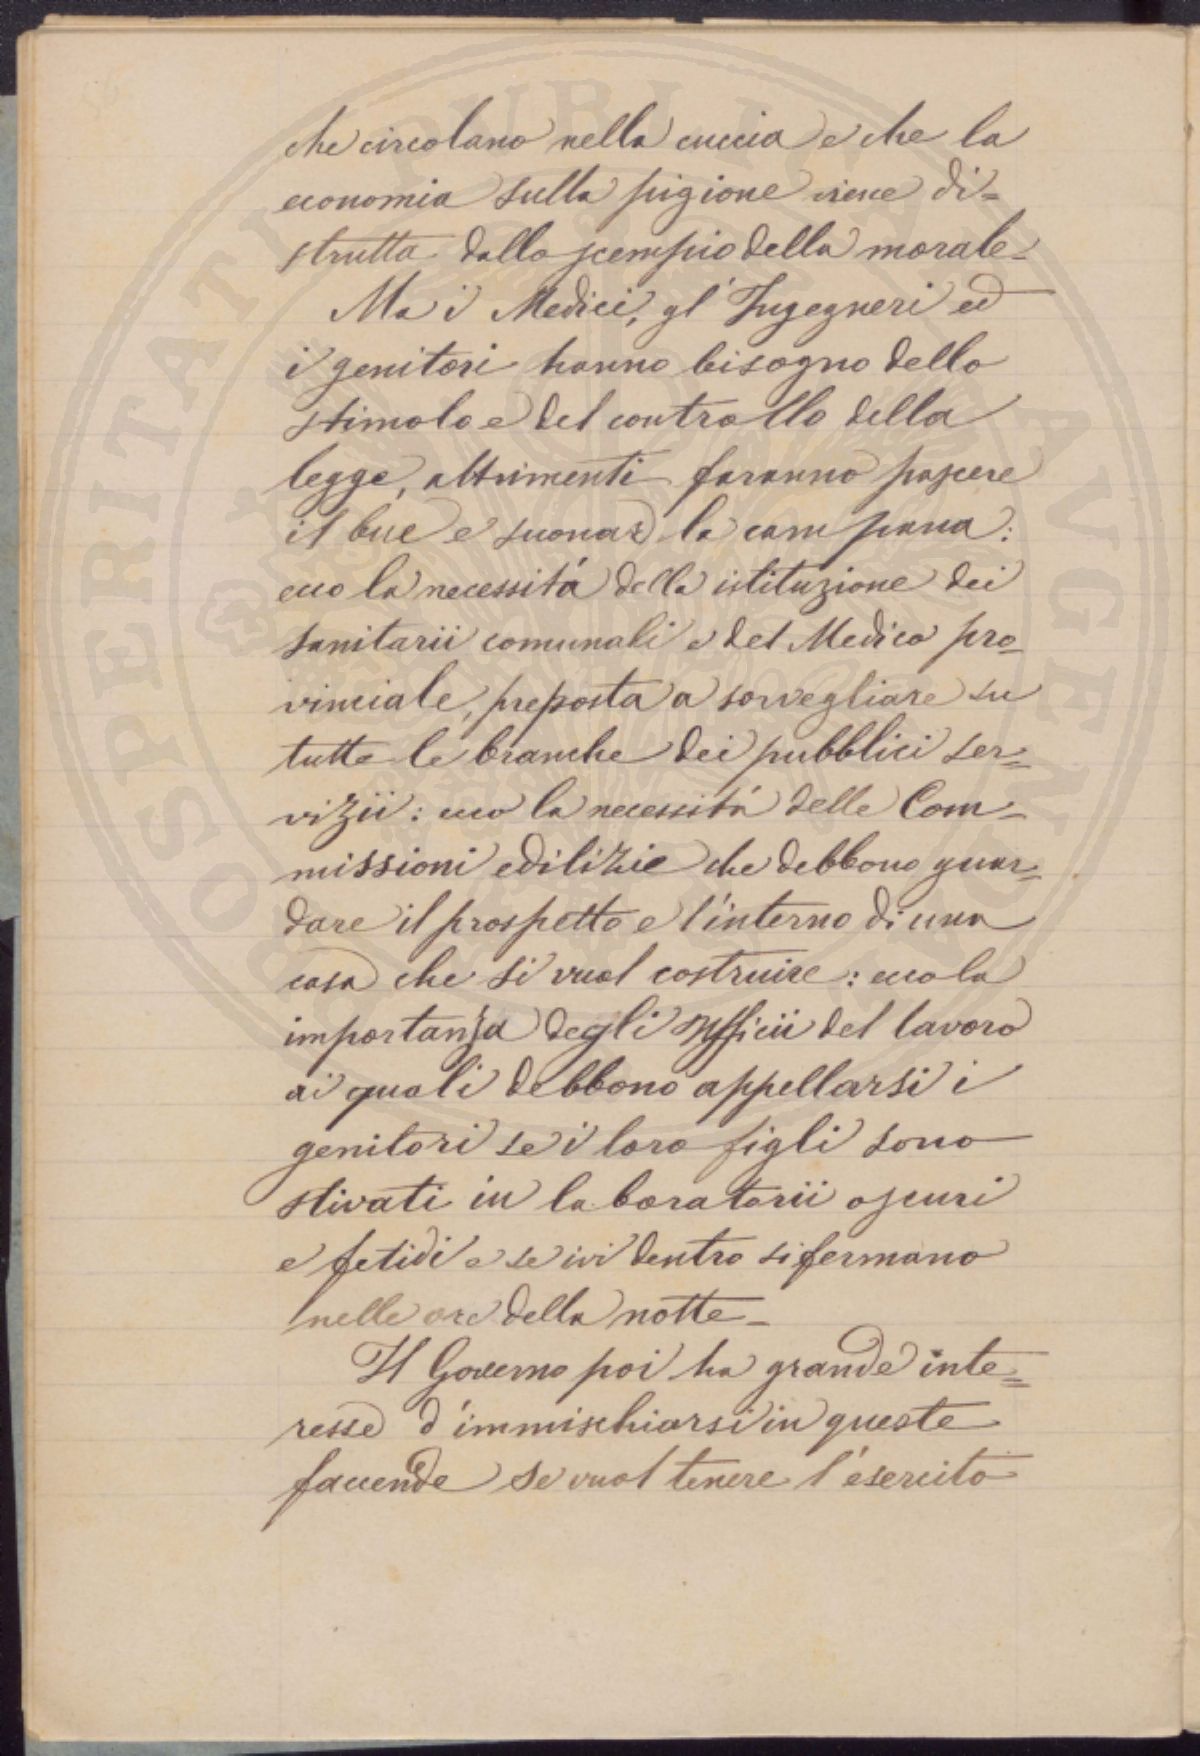 che circolano nella cuccia e che la
economia sulla pigione viene di=
strutta dallo scempio della morale_
Ma i Medici, gl'Ingegneri ed
i genitori hanno bisogno dello
stimolo e del controllo della
legge, altrimenti faranno pascere
il bue e suonar la campana:
ecco la necessità della istituzione dei
sanitarii comunali e del Medico pro_
vinciale, preposta a sorvegliare su
tutte le branche dei pubblici ser=
vizii: ecco la necessità delle Com_
missioni edilizie che debbono guar=
dare il prospetto e l'interno di una
casa che si vuol costruire: ecco la
importanza degli Ufficii del lavoro
ai quali debbono appellarsi i
genitori se i loro figli sono
stivati in laboratorii oscuri
e fetidi e se ivi dentro si fermano
nelle ore della notte_
Il Governo poi ha grande inte=
resse d'immischiarsi in queste
faccende se vuol tenere l'esercito
PROSPERITATI PUBLICAE AVGENDAE